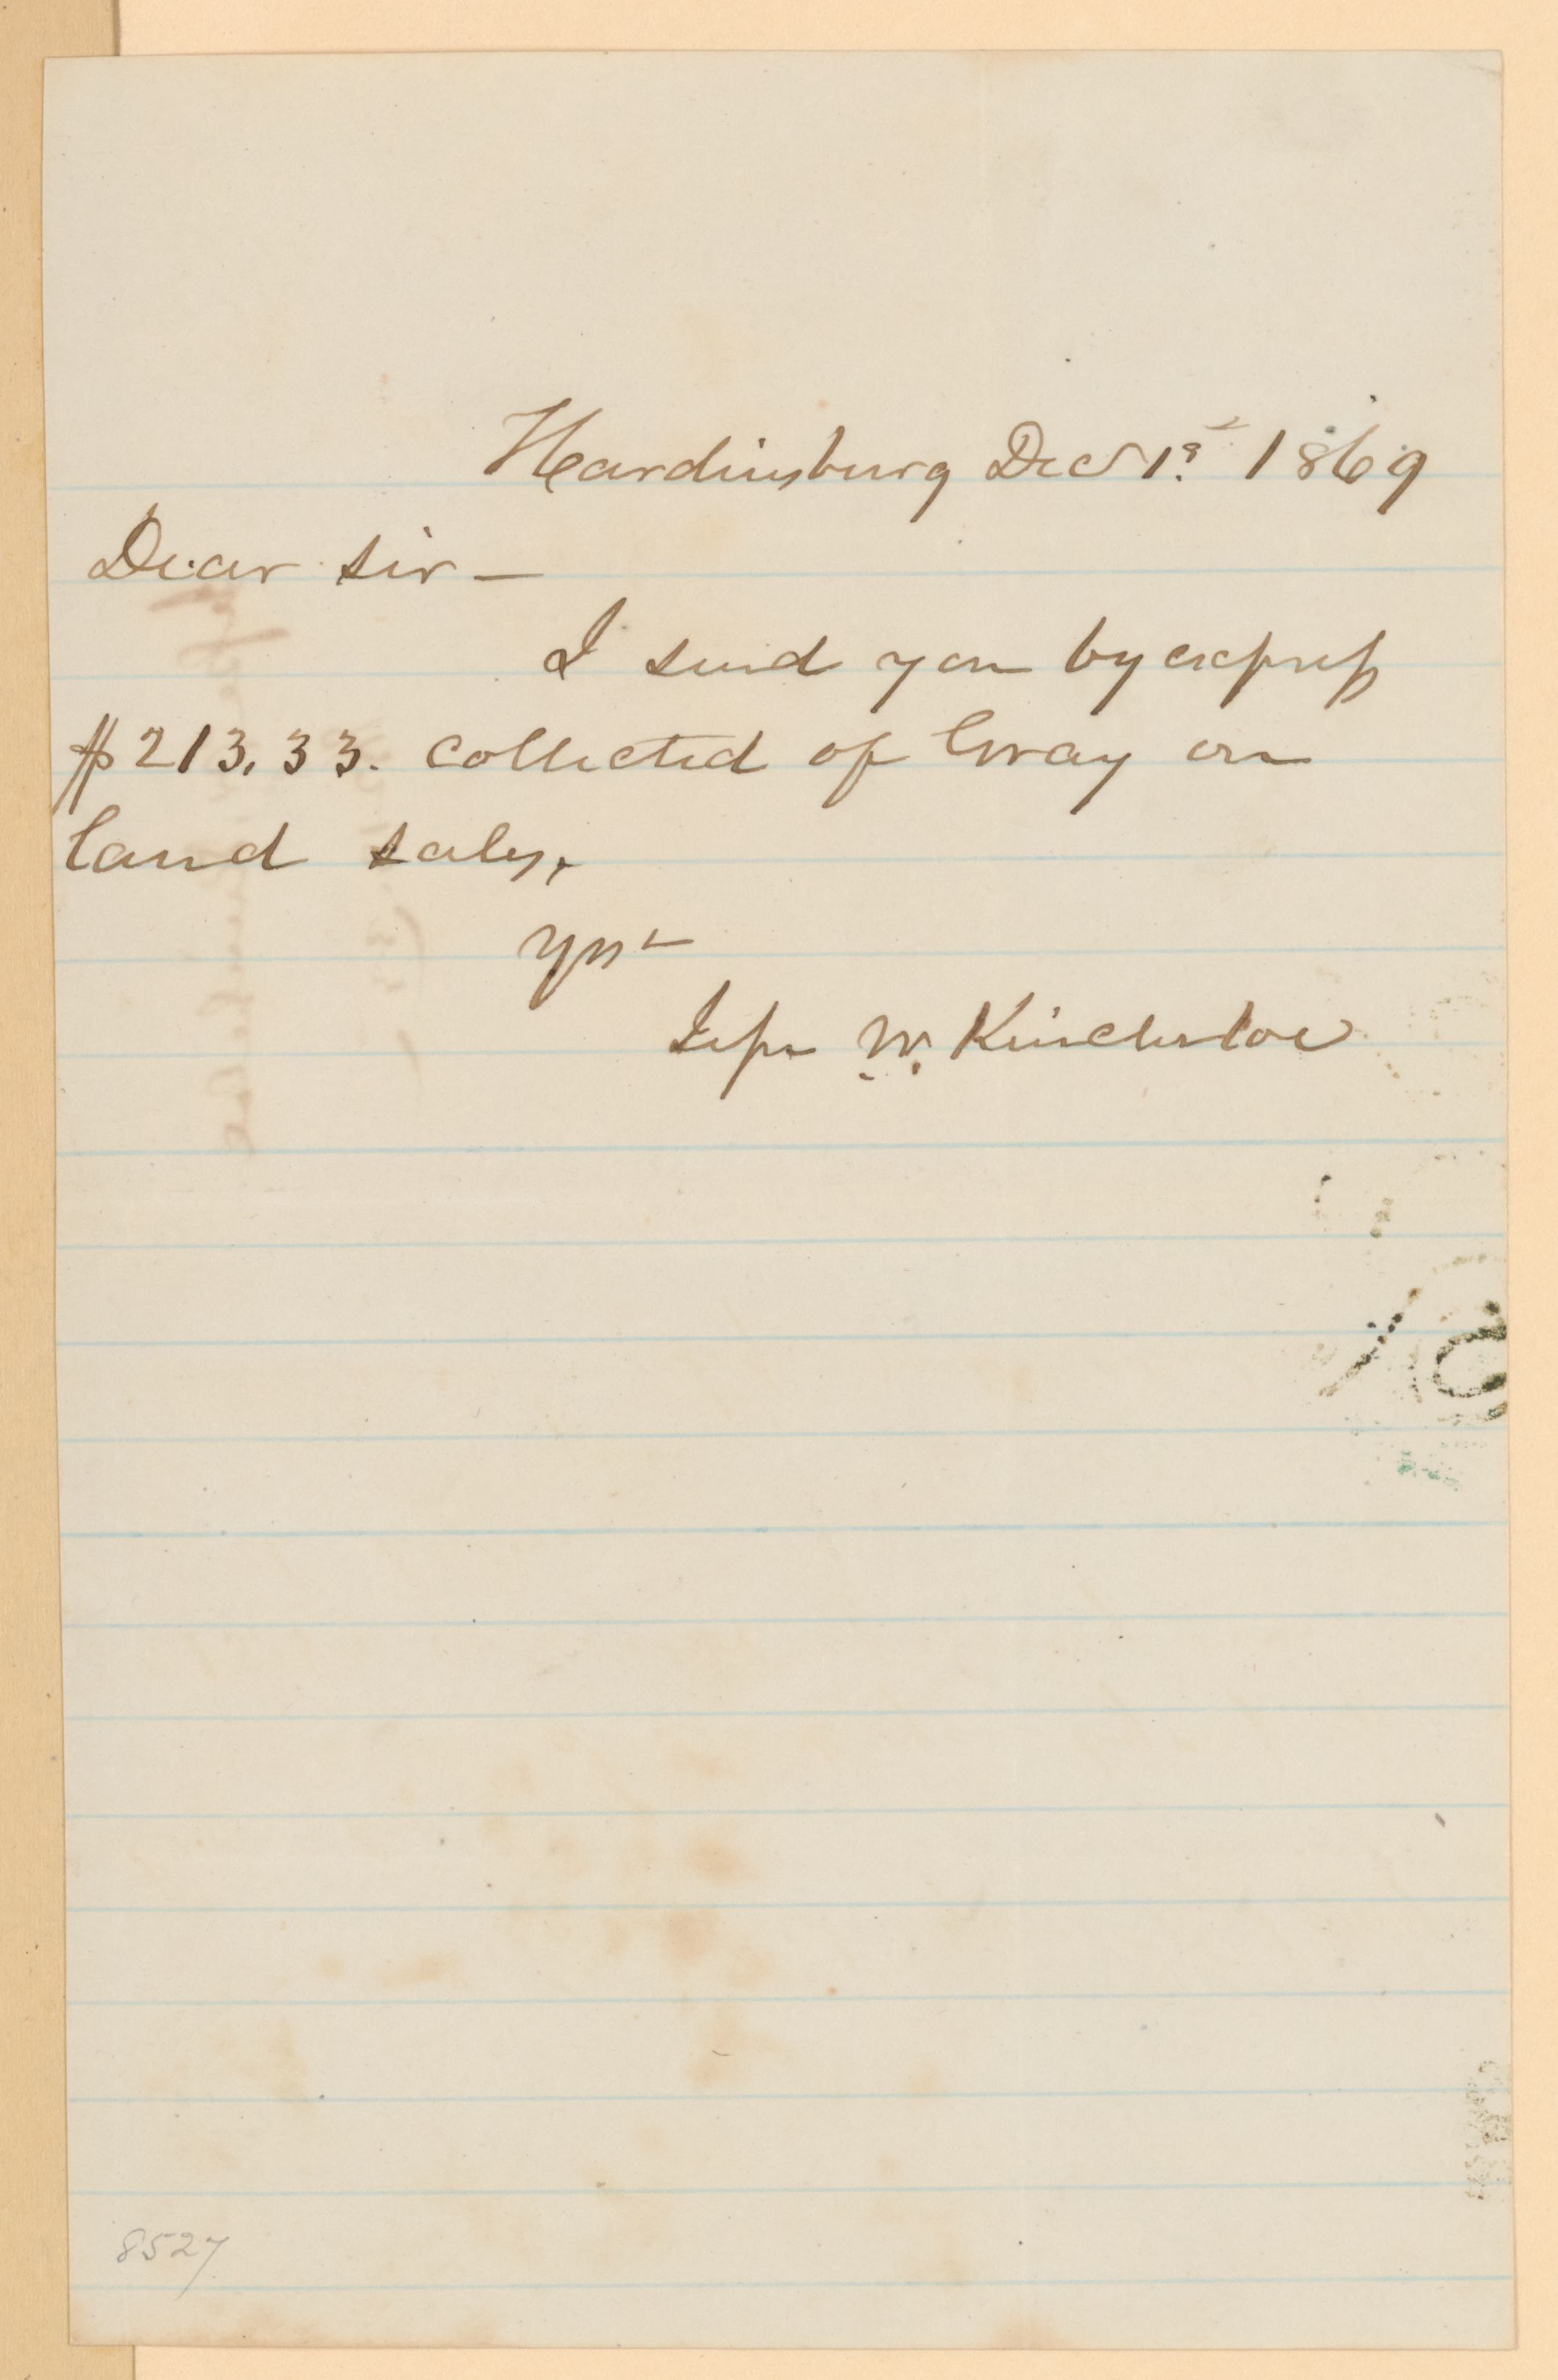 Hardinsburg Dec 1st 1869
Dear sir —
I send you by express
$213.33. collected of Gray on
land sales,
Yrs
Jesse W. Kincheloe
8527